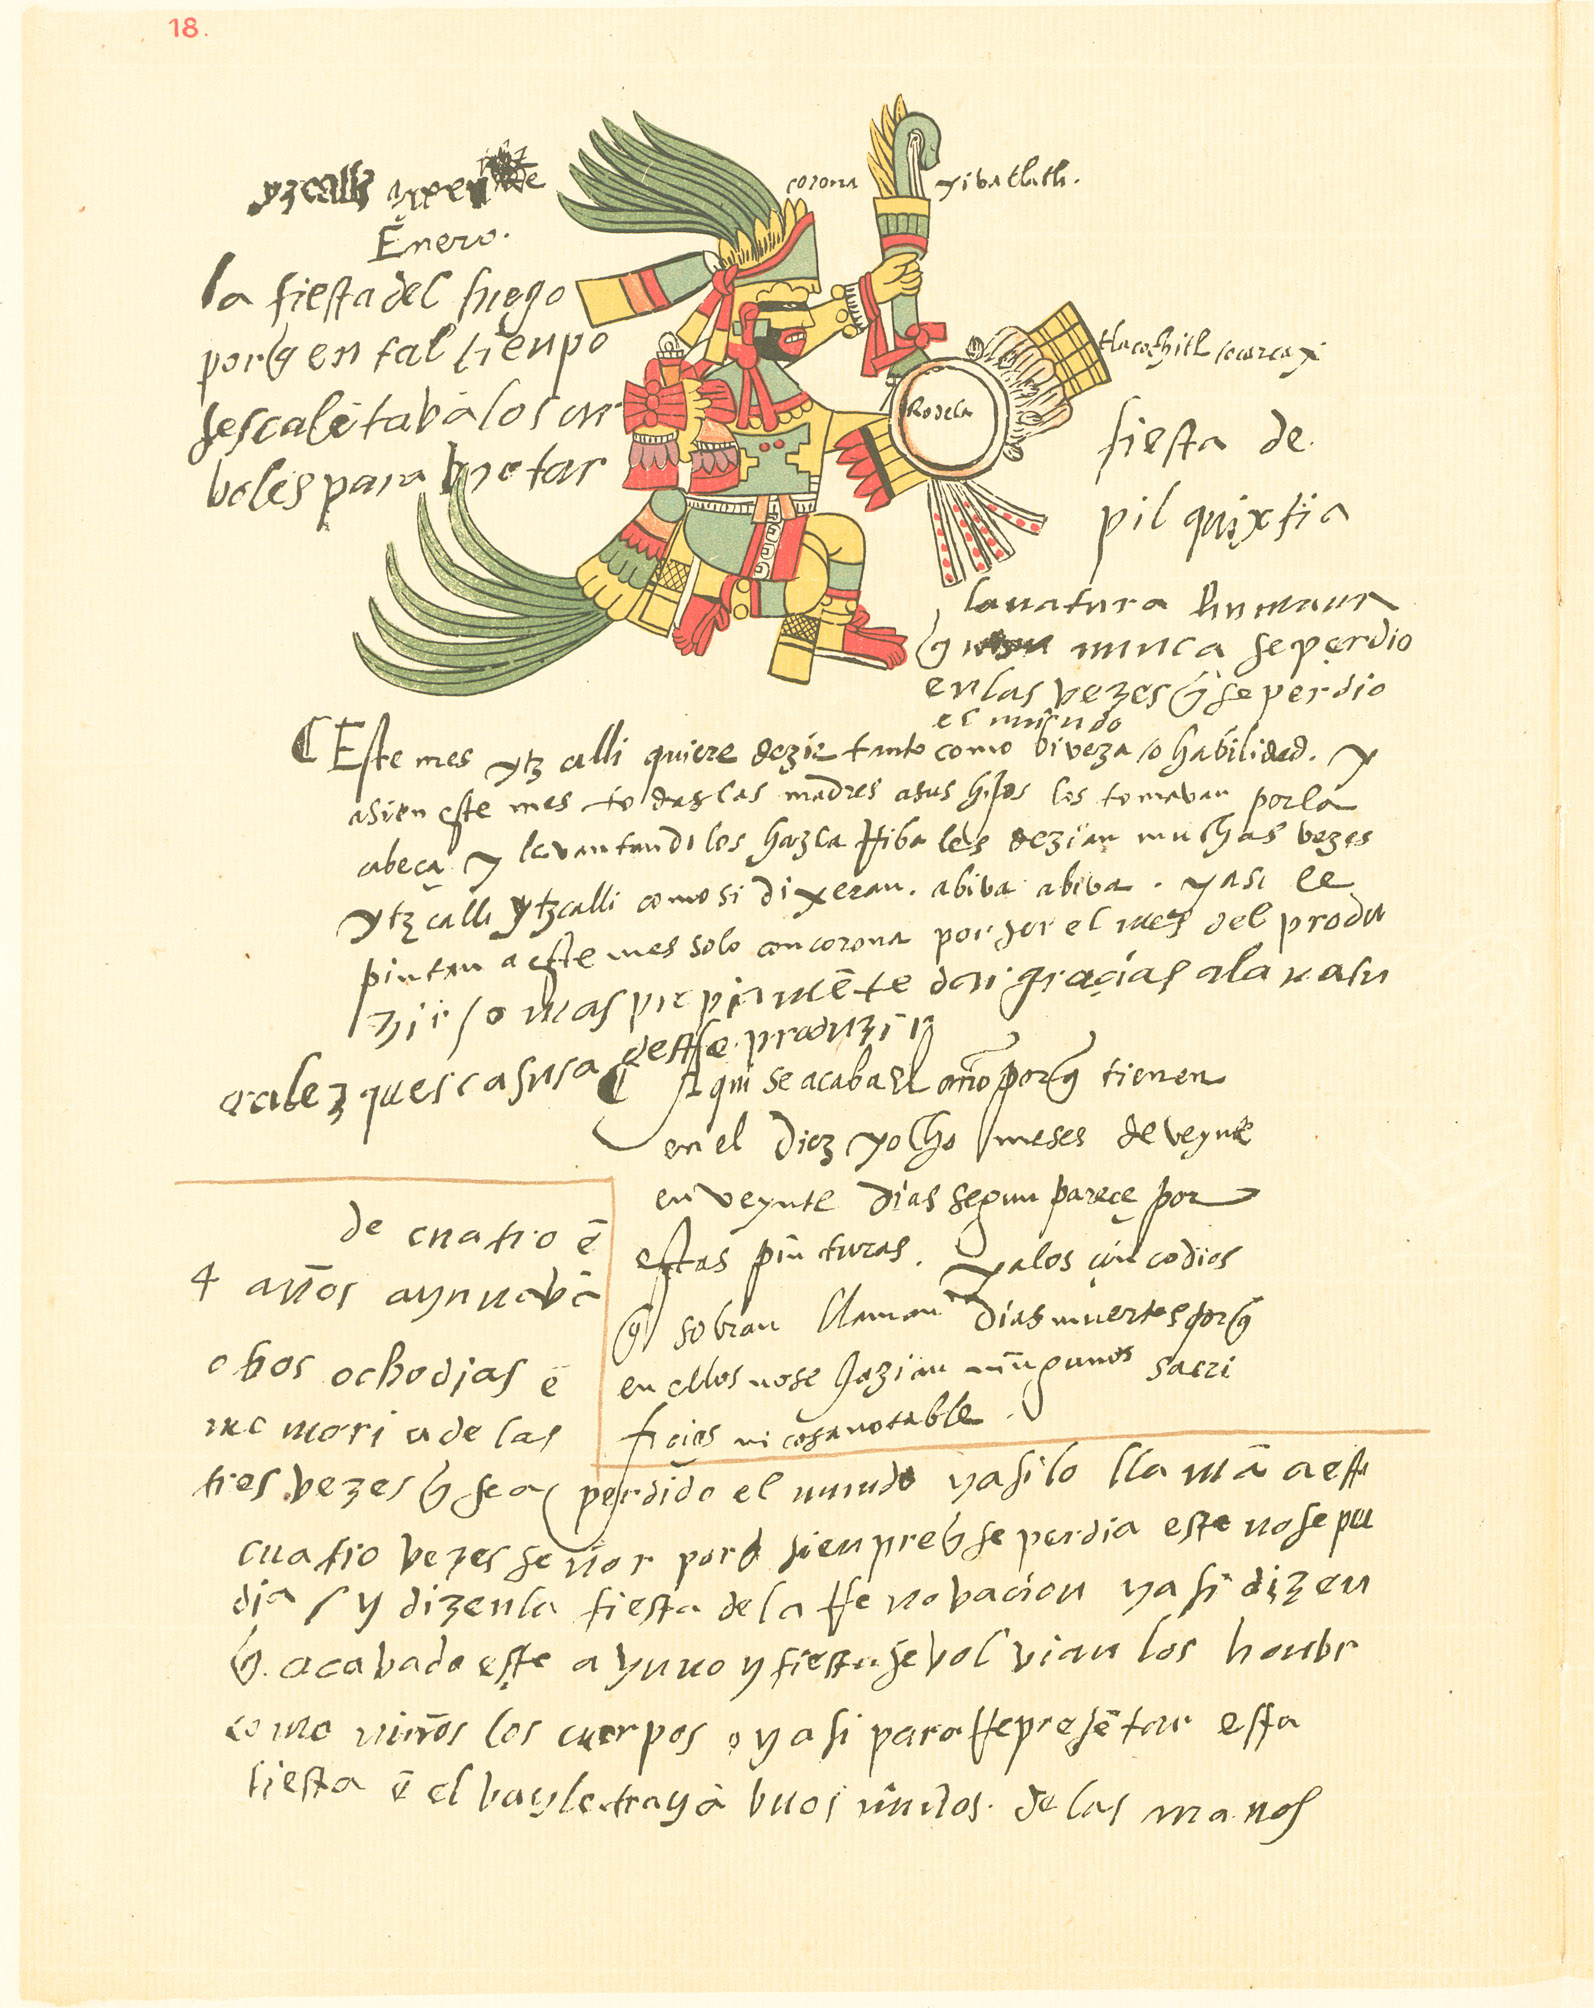 18.
yzcalli
Enero.
la fiesta del fuego
porq̃ en tal tienpo
se scalẽtabã los ar
boles para brotar
corona
xibatlatli.
Rodela
tlacochitl
fiesta de.
pil quixtia
la natura humana
q̃ nunca se perdio
en las vezes q̃ se perdio
el mũdo
Este mes ytz calli quiere dezir tanto como biveza / o habilidad. y
asi en este mes todas las madres a sus hijos los tomavan por la
cabeça y levantandolos hazia arriba les dezian muchas vezes
ytz calli ytzcalli como si dixeran. abiva abiva. y asi le
pintan a este mes solo con corona por ser el mes del produ
zir / o mas propiamẽte dar graçias a la natu
raleza ques casusa deste produzir
Aqui se acaba el año porq̃ tienen
en el diez y ocho meses de veynte
en veynte dias segun pareçe por
estas pinturas. y a los çincodias
q̃ sobran llaman dias muertos porq̃
en ellos no se hazian ningunos sacri
ficios ni cosa notable.
de cuatro ẽ
4 años ayunabã
otros ocho dias ẽ
memoria de las
tres vezes q̃ se a perdido el mundo y asi lo llamã a este
cuatro vezes señor porq̃ sienpre q̃ se perdia este no se per
dia / y dizen la fiesta de la rrenovacion y asi dizen
q̃. acabado este ayuno y fiesta se volvian los honbr
como niños los cuerpos y asi para rrepresẽtar esta
fiesta ẽ el bayle trayã unos niños. de las manos